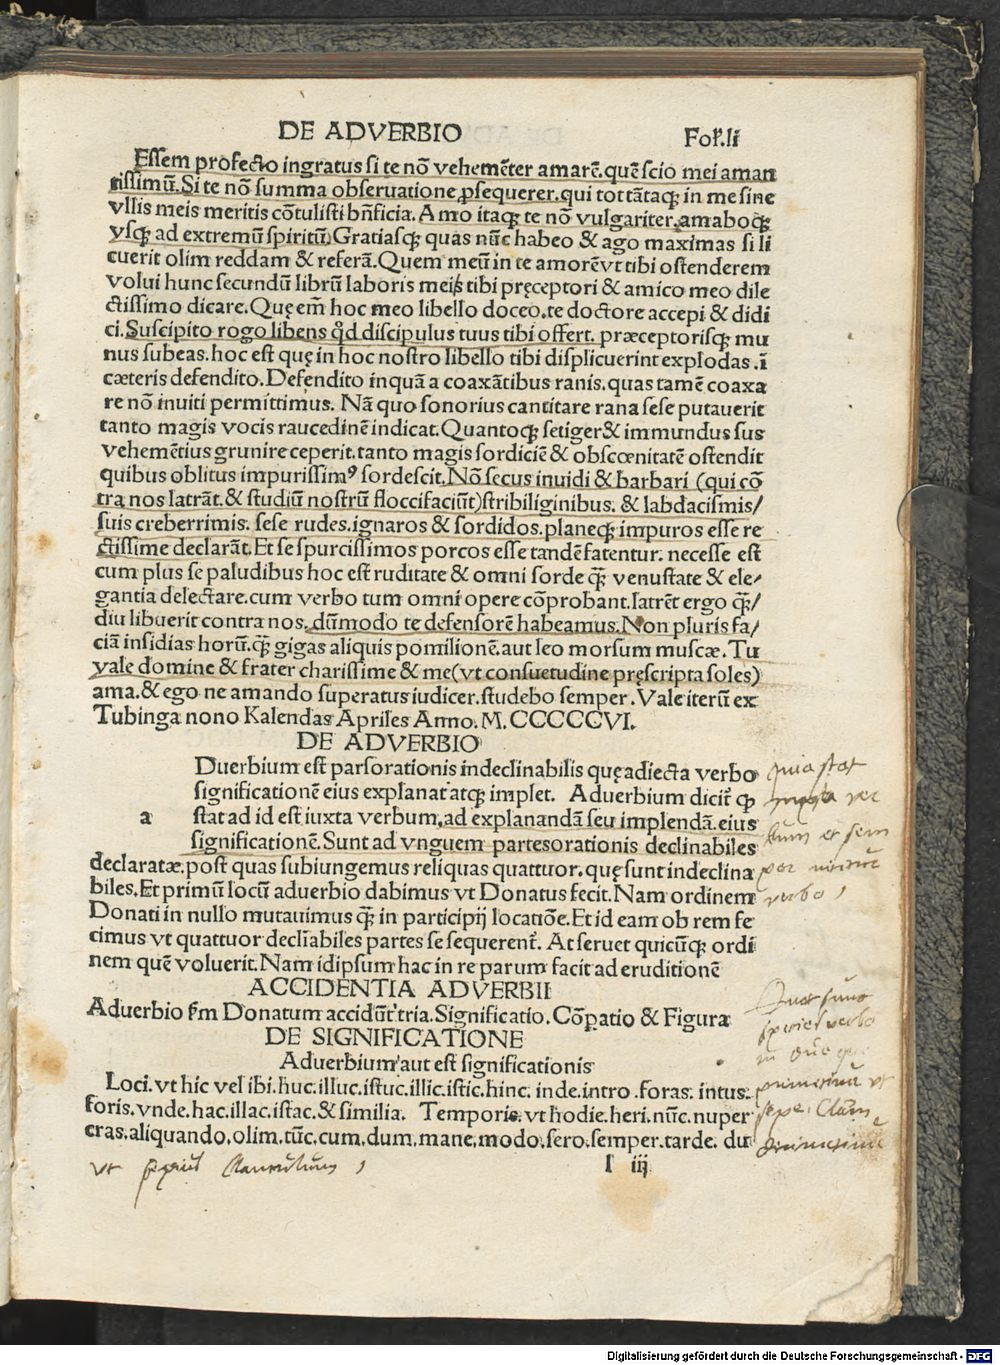 DE ADVERBIO
Fol'.li
Essem profecto ingratus si te nō vehemēter amarē.quē scio mei aman
tissimū.Si te nō summa obseruatione ꝓsequerer.qui tot tātaqꝫ in me sine
vllis meis meritis cōtulisti bn̄ficia.Amo itaqꝫ te nō vulgariter.amaboqꝫ
vsqꝫ ad extremū spiritū.Gratiasqꝫ quas nūc habeo & ago maximas si li
cuerit olim reddam & referā.Quem meū in te amorē vt tibi ostenderem
volui hunc secundū librū laboris meiß tibi pręceptori & amico meo dile
ctissimo dicare.Quę em̄ hoc meo libello doceo.te doctore accepi & didi
ci.Suscipito rogo libens qd̄ discipulus tuus tibi offert. præceptorisqꝫ mu
nus subeas.hoc est quę in hoc nostro libello tibi displicuerint explodas .ī
cæteris defendito.Defendito inquā a coaxātibus ranis.quas tamē coaxa
re nō inuiti permittimus. Nā quo sonorius cantitare rana sese putauerit
tanto magis vocis raucedinē indicat.Quantoqꝫ setiger & immundus sus
vehemētius grunire ceperit.tanto magis sordiciē & obscœnitatē ostendit
quibus oblitus impurissimꝰ sordescit.Nō secus inuidi & barbari (qui cō
tra nos latrāt.& studiū nostrū floccifaciūt)stribiliginibus. & labdacismis/
suis creberrimis. sese rudes.ignaros & sordidos.planeqꝫ impuros esse re
ctissime declarāt.Et se spurcissimos porcos esse tandē fatentur. necesse est
cum plus se paludibus hoc est ruditate & omni sorde qꝫ̄ venustate & ele/
gantia delectare.cum verbo tum omni opere cōprobant.latrēt ergo qꝫ̄/
diu libuerit contra nos. dūmodo te defensorē habeamus.Non pluris fa/
ciā insidias horū.qꝫ̄ gigas aliquis pomilionē.aut leo morsum muscæ.Tu
vale domine & frater charissime & me(vt consuetudine pręscripta soles)
ama.& ego ne amando superatus iudicer.studebo semper.Vale iterū ex
Tubinga nono Kalendas Apriles Anno.M.CCCCCVI.
DE ADVERBIO
Duerbium est pars orationis indeclinabilis quę adiecta verbo
significationē eius explanat atqꝫ implet. Aduerbium dicit̄ qꝫ
a
stat ad id est iuxta verbum,ad explanandā seu implendā.eius
significationē.Sunt ad vnguem partes orationis declinabiles
declaratæ.post quas subiungemus reliquas quattuor.quę sunt indeclina
biles.Et primū locū aduerbio dabimus vt Donatus fecit.Nam ordinem
Donati in nullo mutauimus qꝫ̄ in participij locatiōe.Et id eam ob rem fe
cimus vt quattuor decliabiles partes se sequerent̄. At seruet quicūqꝫ ordi
nem quē voluerit.Nam idipsum hac in re parum facit ad eruditionē
quia stat
iuxta ver
bum et sem
per
verbo
ACCIDENTIA ADVERBII
Aduerbio fm Donatum accidūt tria.Significatio.Cōꝑatio & Figura
DE SIGNIFICATIONE
Aduerbium aut est significationis
Loci.vt hic vel ibi.huc.illuc.istuc.illic.istic.hinc. inde.intro .foras. intus.
foris.vnde.hac.illac.istac.& similia. Temporis.vt hodie.heri.nūc.nuper
cras.aliquando.olim.tūc.cum.dum.mane.modo.sero.semper.tarde. du
Quot sunt
species verbo
due
primitiua vt
sepe. Clam
vt
I iij
Digitalisierung gefördert durch die Deutsche Forschungsgemeinschaft - DFG